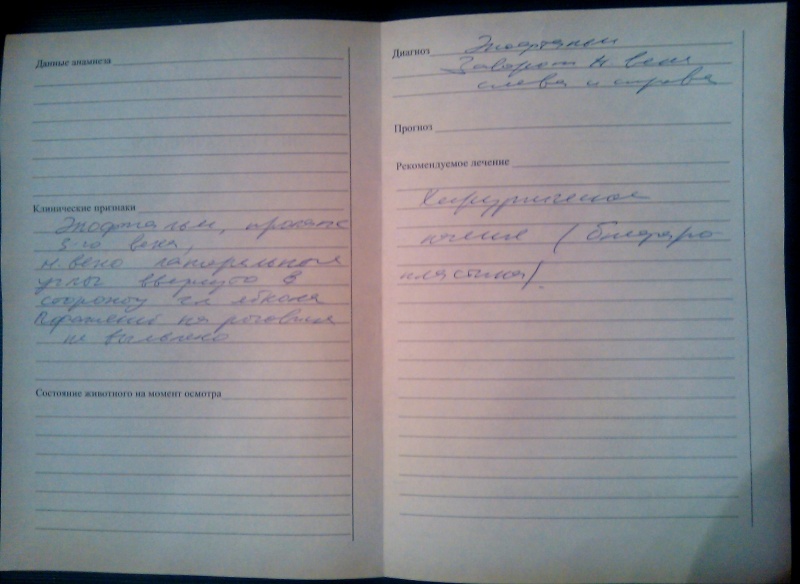 Данные анамнеза
Клинические признаки
Экзофтальм, пролапс
3-го века,
н. веко латеральный
угол ввернуто в
сторону гл яблока
Поражений на роговице
не выявлено
Состояние животного на момент осмотра
Диагноз Экзофтальм
Заворот н века
слева и справа
Прогноз
Рекомендуемое лечение
Хирургическое
(блефаро-
пластика).